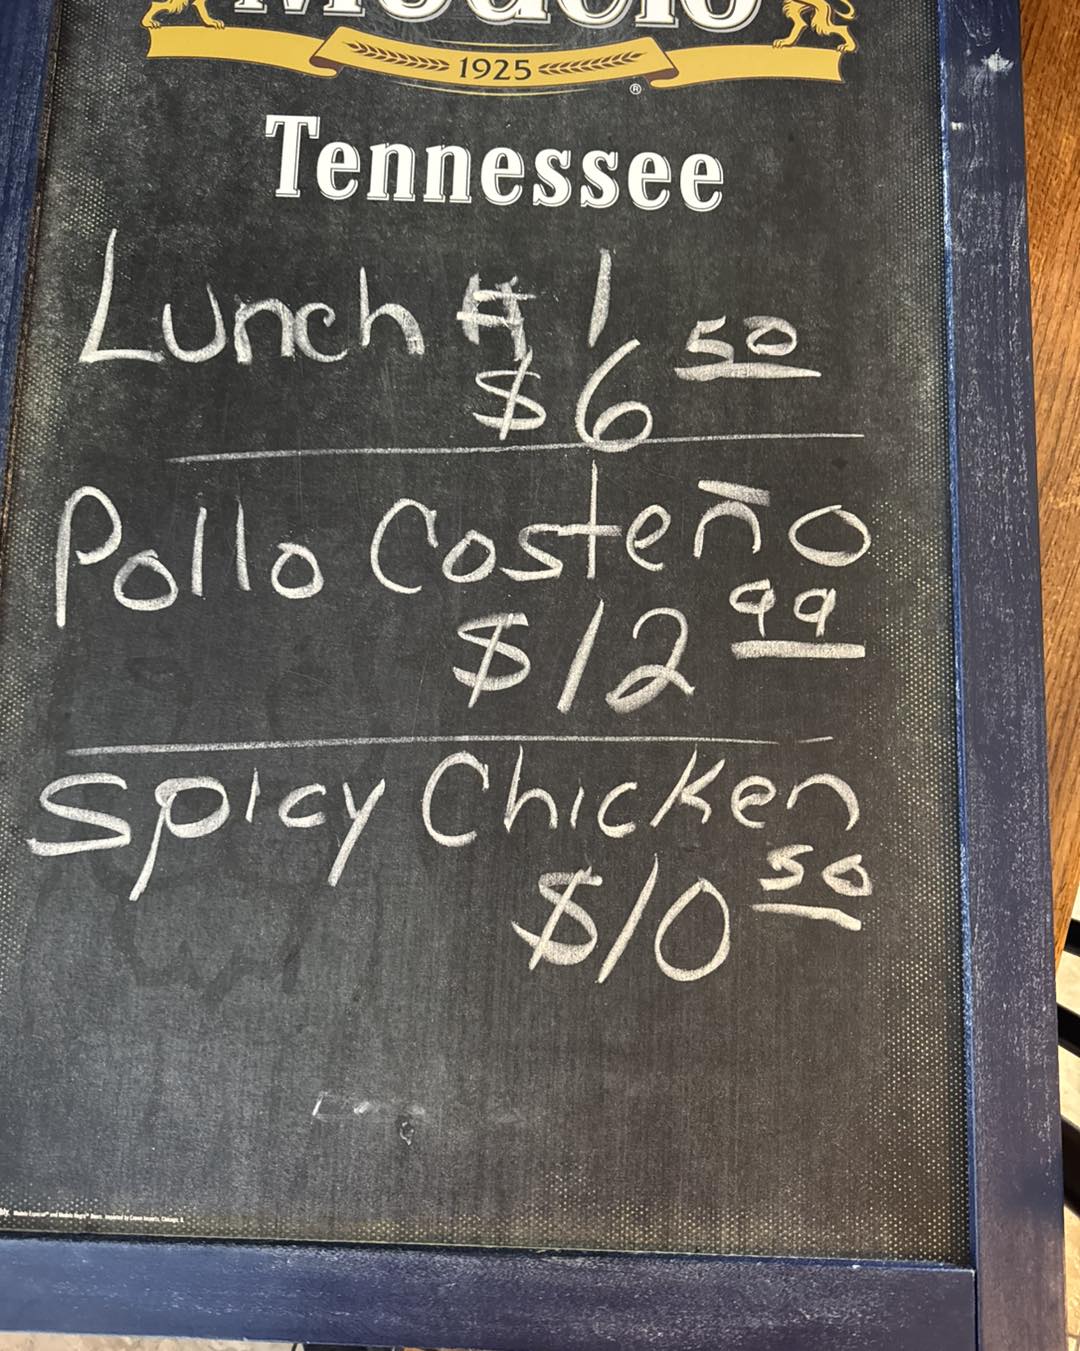 Modelo
1925
®
Tennessee
Lunch # 1
$6 50
Pollo Costeño
$12 99
Spicy Chicken
$10 50